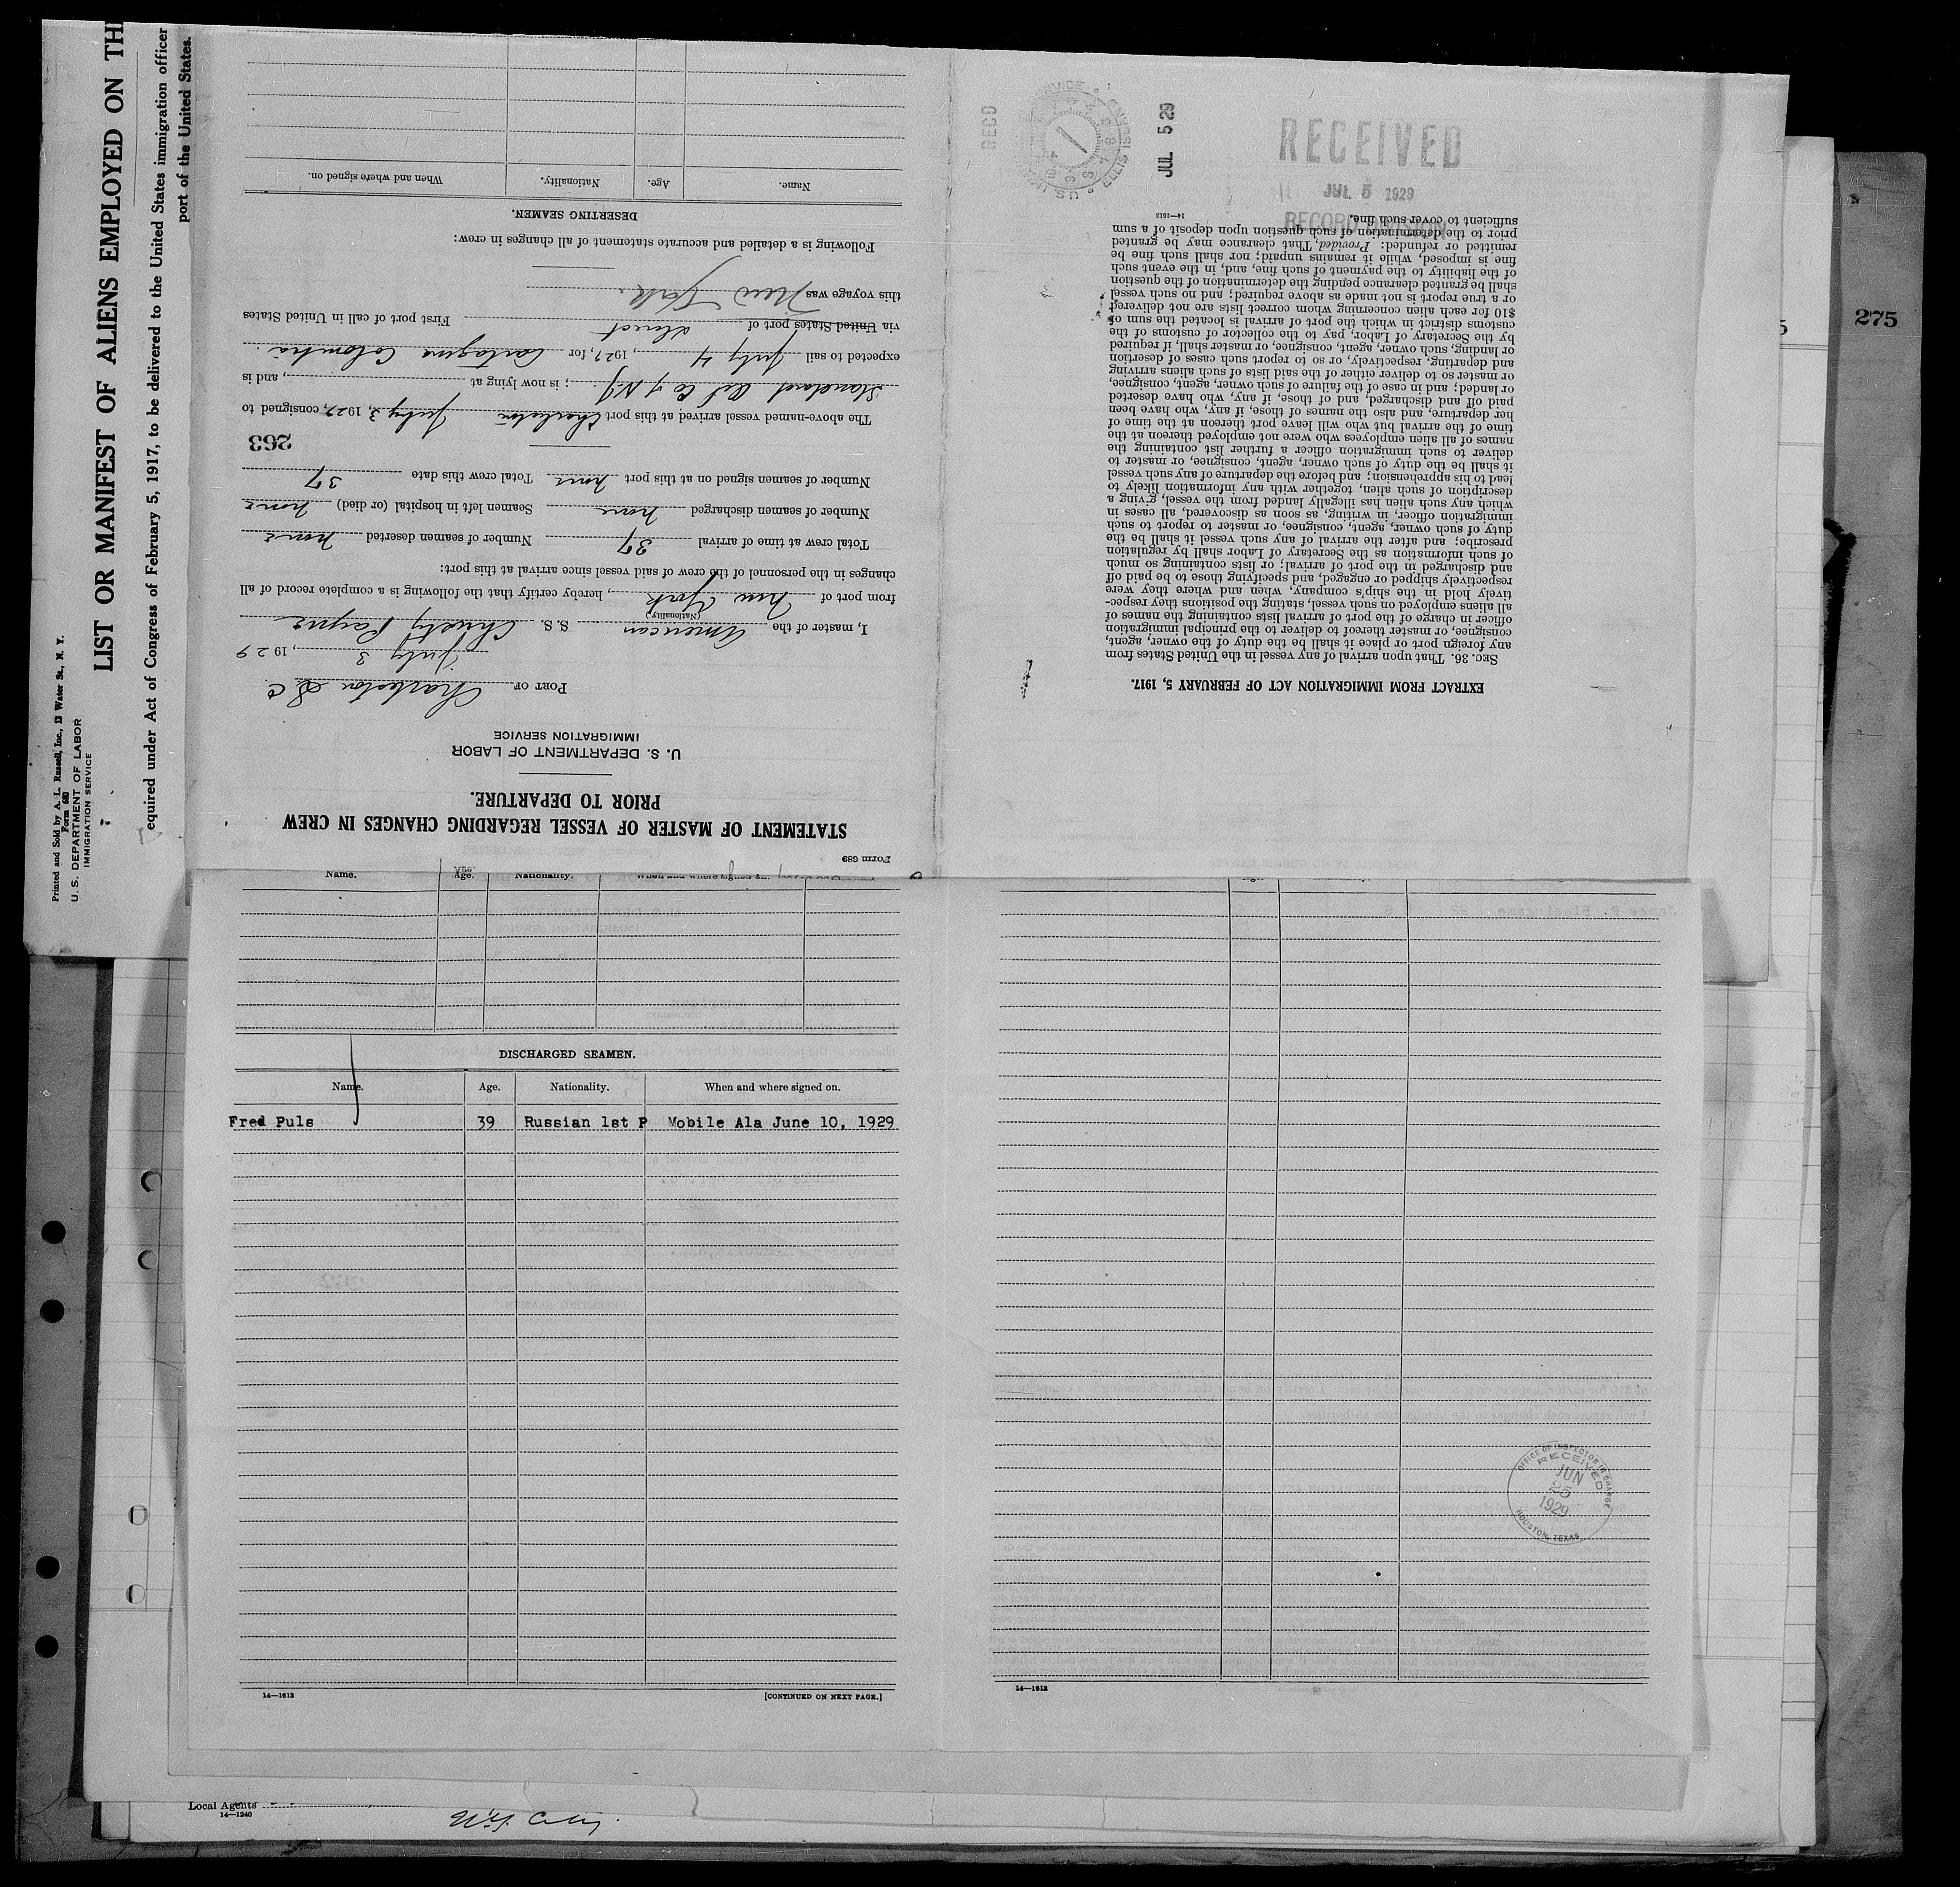 Printed and Sold by A. L. Russell, Inc., 13 Water St., N. Y.
Form 680
U. S. DEPARTMENT OF LABOR
IMMIGRATION SERVICE
LIST OR MANIFEST OF ALIENS EMPLOYED ON TH
equired under Act of Congress of February 5, 1917, to be delivered to the United States immigration officer
port of the United States.
Form 689
STATEMENT OF MASTER OF VESSEL REGARDING CHANGES IN CREW
PRIOR TO DEPARTURE.
U. S. DEPARTMENT OF LABOR
IMMIGRATION SERVICE
PORT OF Charleston S C
July 3, 1929
I, master of the American S. S. Christy Payne
(Nationality)
from port of New York, hereby certify that the following is a complete record of all
changes in the personnel of the crew of said vessel since arrival at this port:
Total crew at time of arrival 37 Number of seamen deserted none
Number of seamen discharged none Seamen left in hospital (or died) none
Number of seamen signed on at this port none Total crew this date 37
263
The above-named vessel arrived at this port Charleston July 3, 1929, consigned to
Standard Oil Co of NJ.; is now lying at , and is
expected to sail July 4, 1929, for Cartagena Colombia
via United States port of direct First port of call in United States
this voyage was New York.
Following is a detailed and accurate statement of all changes in crew:
DESERTING SEAMEN.
Name. Age. Nationality. When and where signed on.
EXTRACT FROM IMMIGRATION ACT OF FEBRUARY 5, 1917.
SEC. 36. That upon arrival of any vessel in the United States from
any foreign port or place it shall be the duty of the owner, agent,
consignee, or master thereof to deliver to the principal immigration
officer in charge of the port of arrival lists containing the names of
all aliens employed on such vessel, stating the positions they respec-
tively hold in the ship's company, when and where they were
respectively shipped or engaged, and specifying those to be paid off
and discharged in the port of arrival; or lists containing so much
of such information as the Secretary of Labor shall by regulation
prescribe; and after the arrival of any such vessel it shall be the
duty of such owner, agent, consignee, or master to report to such
immigration officer, in writing, as soon as discovered, all cases in
which any such alien has illegally landed from the vessel, giving a
description of such alien, together with any information likely to
lead to his apprehension; and before the departure of any such vessel
it shall be the duty of such owner, agent, consignee, or master to
deliver to such immigration officer a further list containing the
names of all alien employees who were not employed thereon at the
time of the arrival but who will leave port thereon at the time of
her departure, and also the names of those, if any, who have been
paid off and discharged, and of those, if any, who have deserted
or landed; and in case of the failure of such owner, agent, consignee,
or master so to deliver either of the said lists of such aliens arriving
and departing, respectively, or so to report such cases of desertion
or landing, such owner, agent, consignee, or master shall, if required
by the Secretary of Labor, pay to the collector of customs of the
customs district in which the port of arrival is located the sum of
$10 for each alien concerning whom correct lists are not delivered
or a true report is not made as above required; and no such vessel
shall be granted clearance pending the determination of the question
of the liability to the payment of such fine, and, in the event such
fine is imposed, while it remains unpaid; nor shall such fine be
remitted or refunded: Provided, That clearance may be granted
prior to the determination of such question upon deposit of a sum
sufficient to cover such fine.
14—1613
RECEIVED
JUL 5 1929
RECORD DIVISION
RECD
JUL 5 29
ELLIS ISLAND
275
Name. Age. Nationality. When and where signed on.
DISCHARGED SEAMEN.
Name. Age. Nationality. When and where signed on.
Fred Puls 39 Russian 1st P Mobile Ala June 10, 1929
14—1613 [CONTINUED ON NEXT PAGE.]
OFFICE OF INSPECTOR IN CHARGE
RECEIVED
JUN
25
1929
HOUSTON, TEXAS
14—1613
Local Agents
14—1240